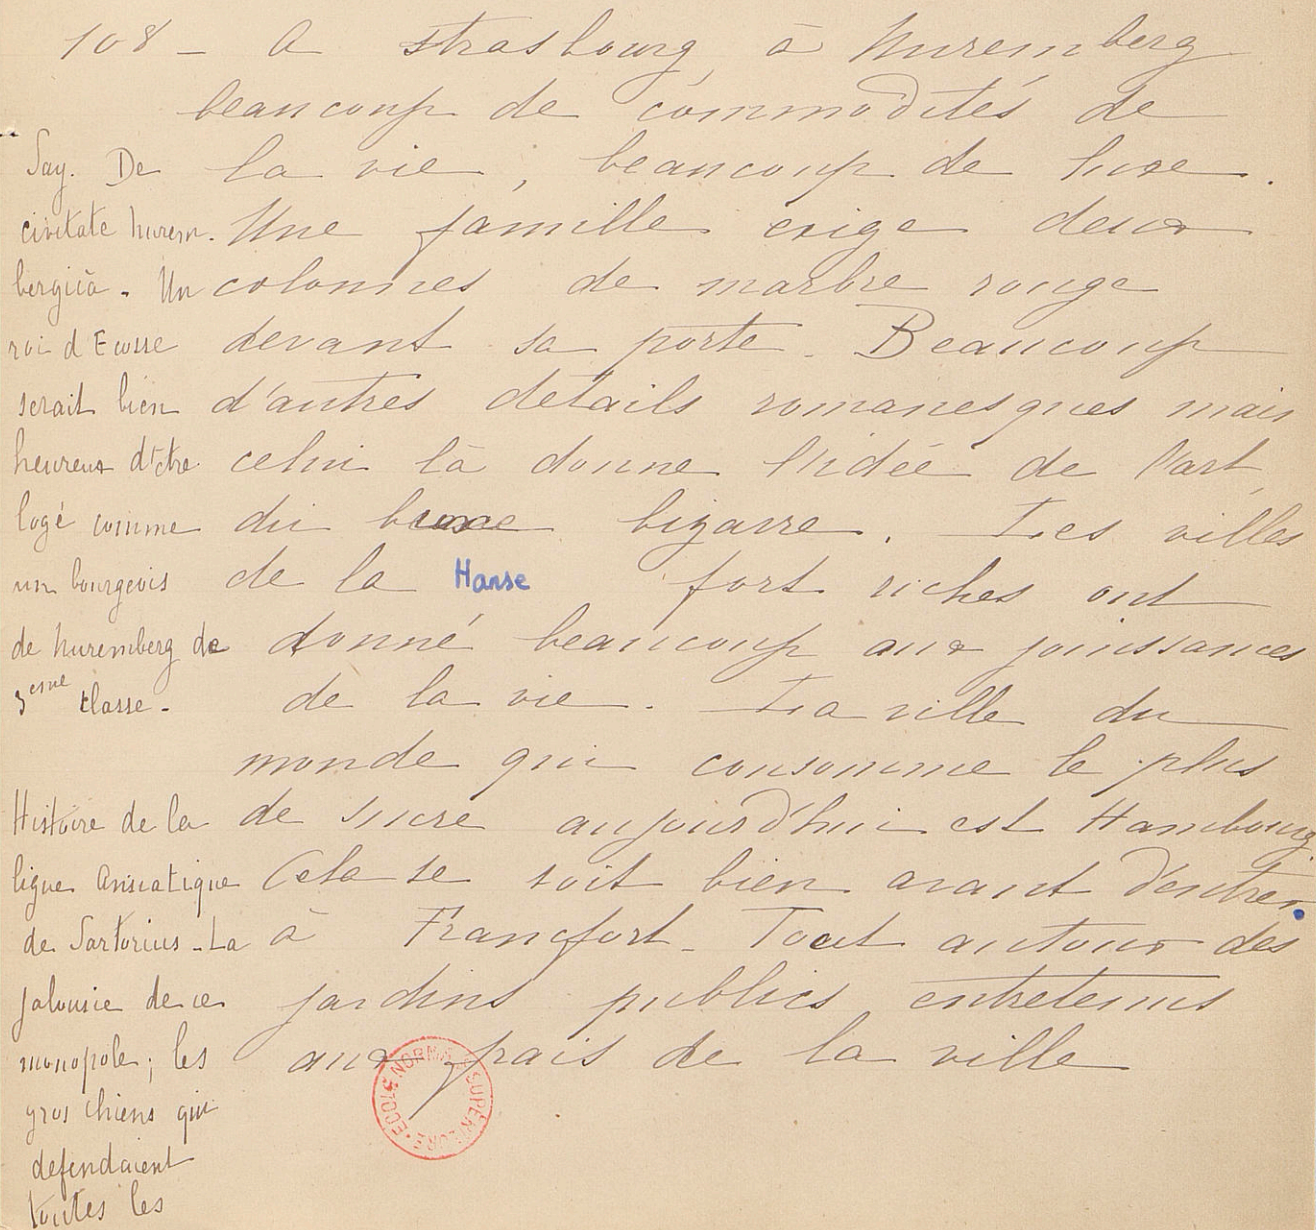 108 - A Strasbourg, à Nuremberg
beaucoup de commodités de
la vie, beaucoup de luxe.
Une famille exige deux
colonnes de marbre rouge
devant sa porte. Beaucoup
d'autres details romanesques mais
celui là donne l'idée de l'art,
du bizarre. Les villes
de la Hanse fort riches ont
donné beaucoup aux jouissances
de la vie. La ville du
monde qui consomme le plus
de sucre aujourd'hui est Hambourg
Cela se voit bien avant d'entrer
à Francfort. Tout autour des
jardins publics entretenus
aux frais de la ville
Say. De
civitate Nurem-
bergicà. Un
roi d'Ecosse
serait bien
heureux d'être
logé comme
un bourgeois
de Nuremberg de
3eme classe.
Histoire de la
ligue Anséatique
de Sartorius. La
jalousie de ce
monopole; les
gros chiens qui
defendaient
toutes les
ECOLE NORMALE SUPERIEURE